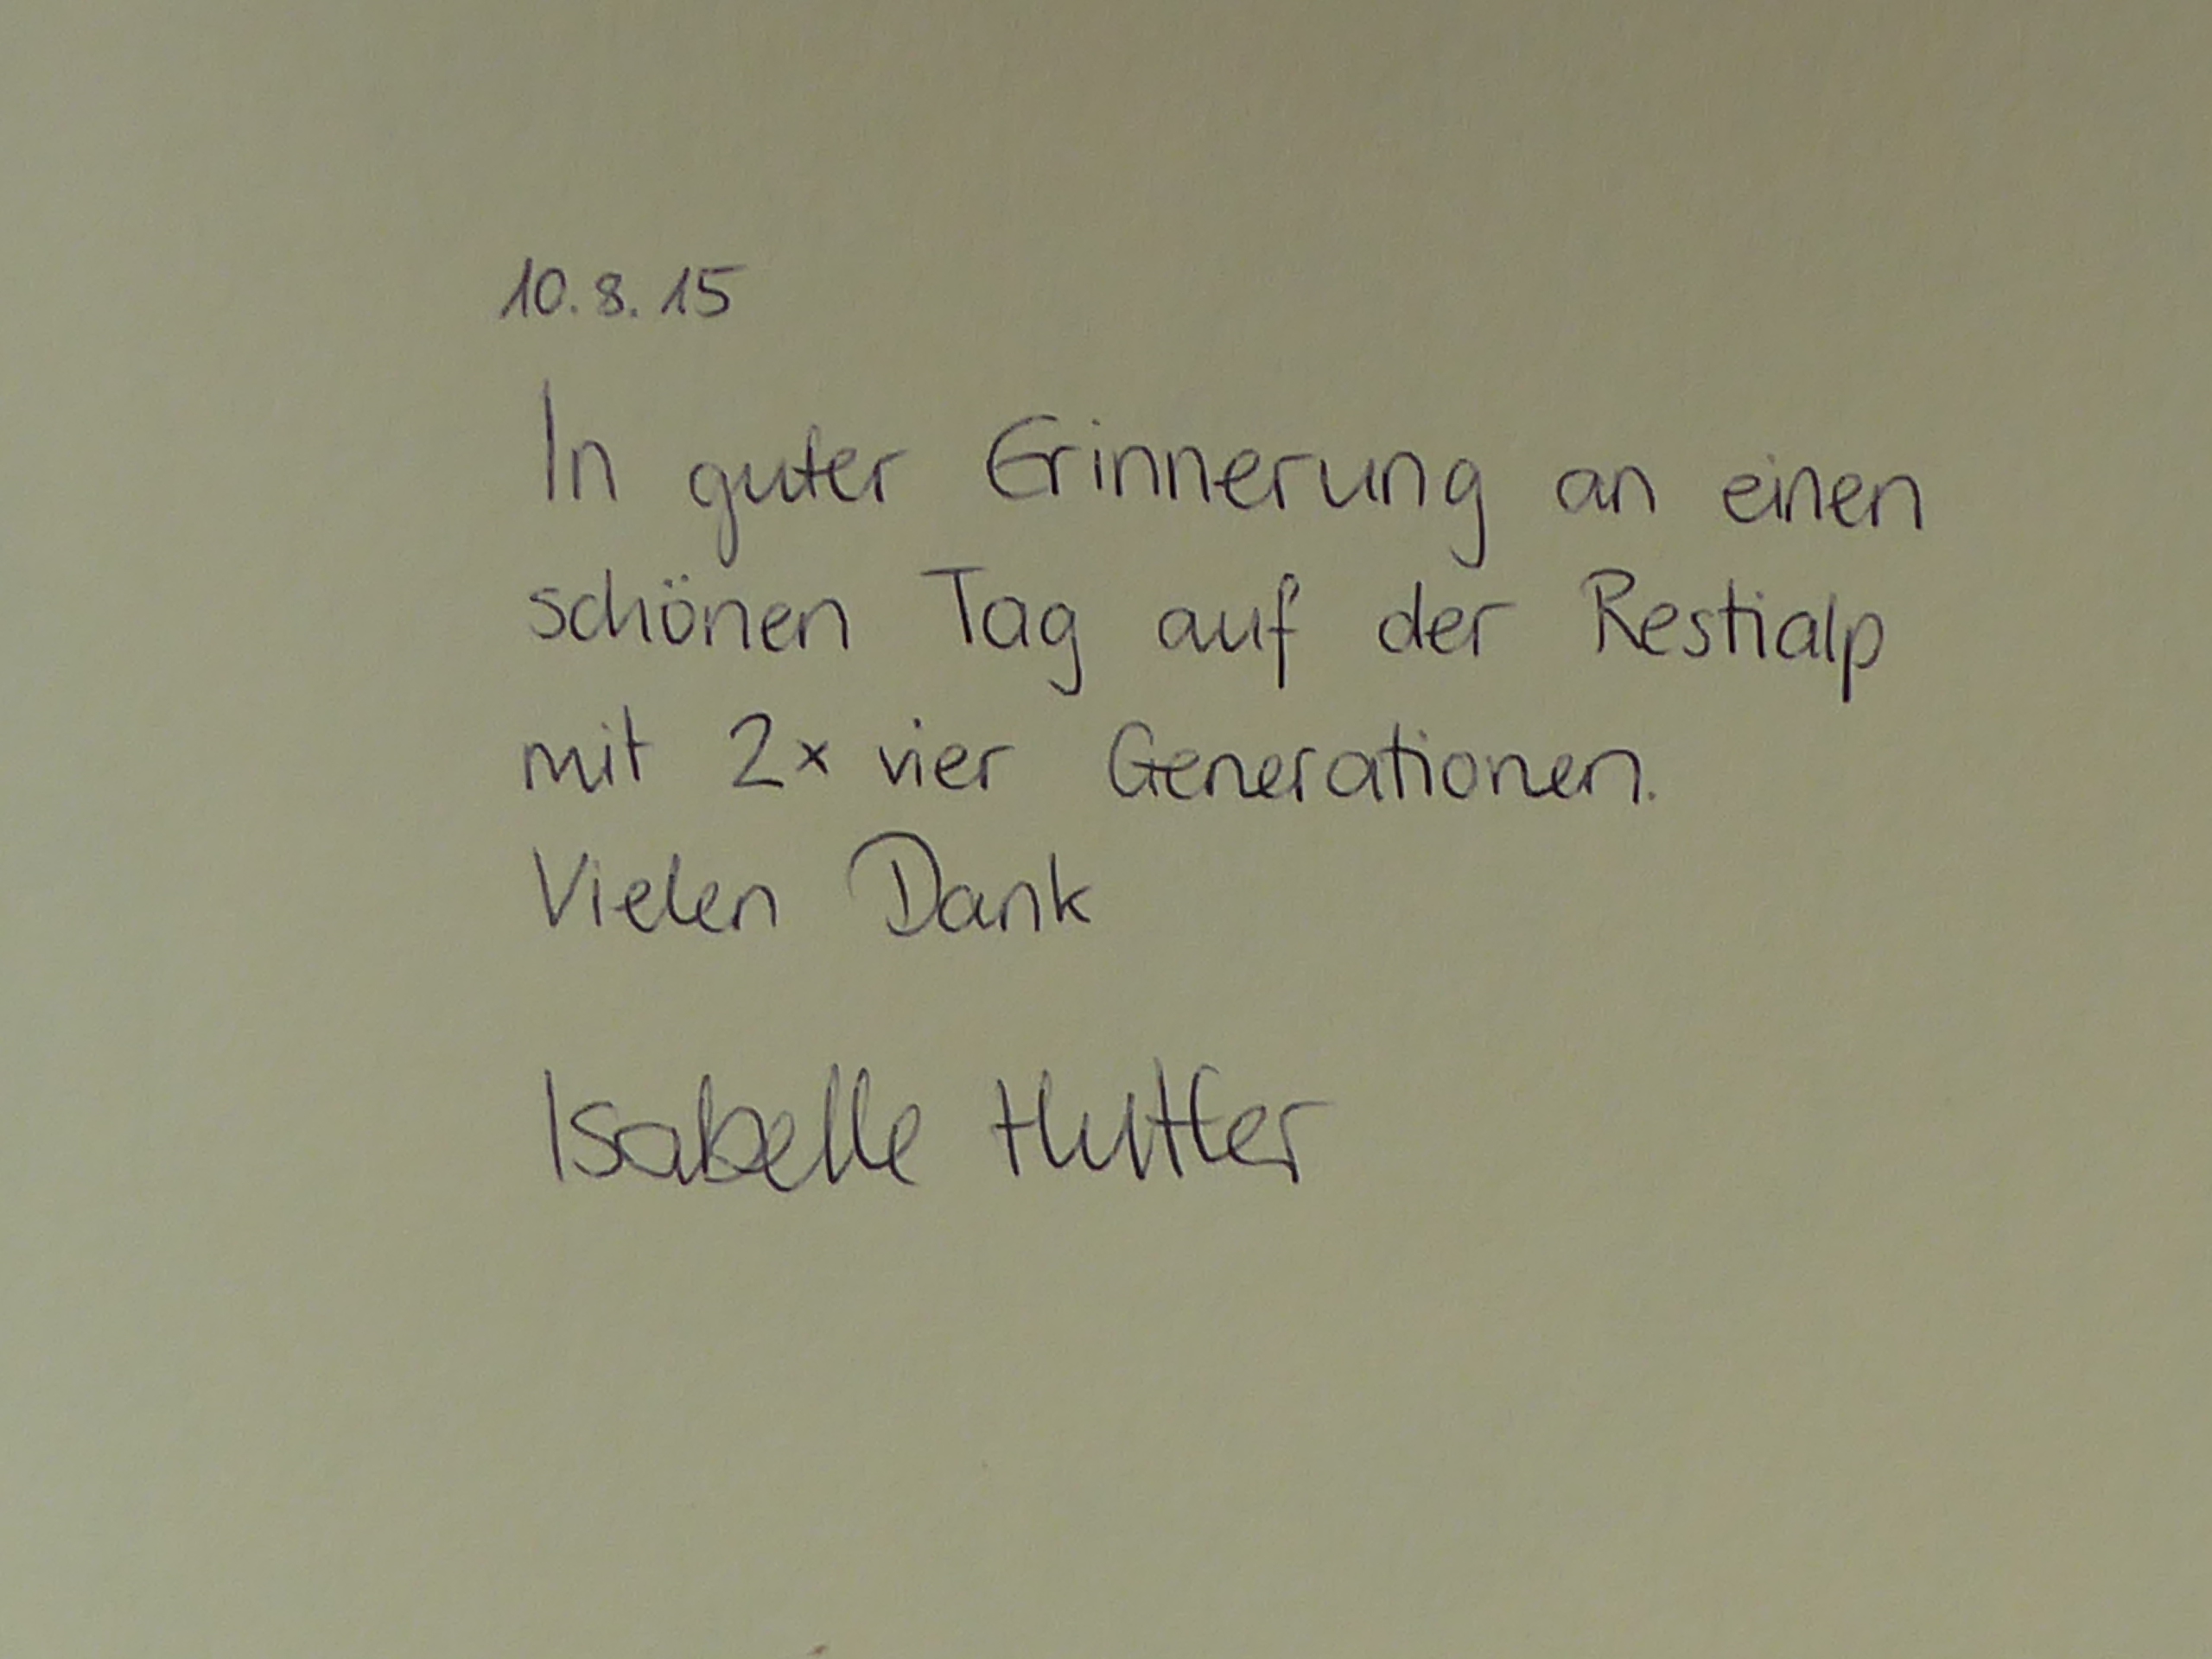 10.8.15
In guter Erinnerung an einen
schönen Tag auf der Restialp
mit 2x vier Generationen.
Vielen Dank
Isabelle Hutter